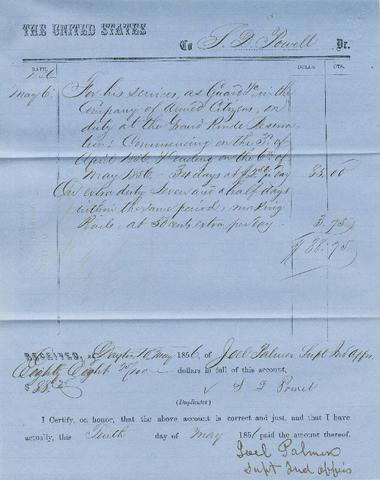 THE UNITED STATES
To S. D. Powell Dr.
DATE. DOLLS. CTS.
1856
May 6 For his services, as Guard &c in the
Company of Armed Citizens, on
duty at the Grand Ronde Reserva
tion: Commencing on the 3d of
April 1856 & ending on the 6th of
May 1856. 34 days at $2.50 pr day 85.00
On extra duty Seven and a half days
within the same period, making
Rails, at 50 cents extra per day 3.75
$ 88.75
RECEIVED, at Dayton 10 May 1856, of Joel Palmer, Supt Ind Affrs.
Eighty Eight 75/100 dollars in full of this account,
$88.75
S D Powell
(Duplicates)
I Certify, on honor, that the above account is correct and just, and that I have
actually, this Tenth day of May 1856 paid the amount thereof.
Joel Palmer
Supt Ind Affairs